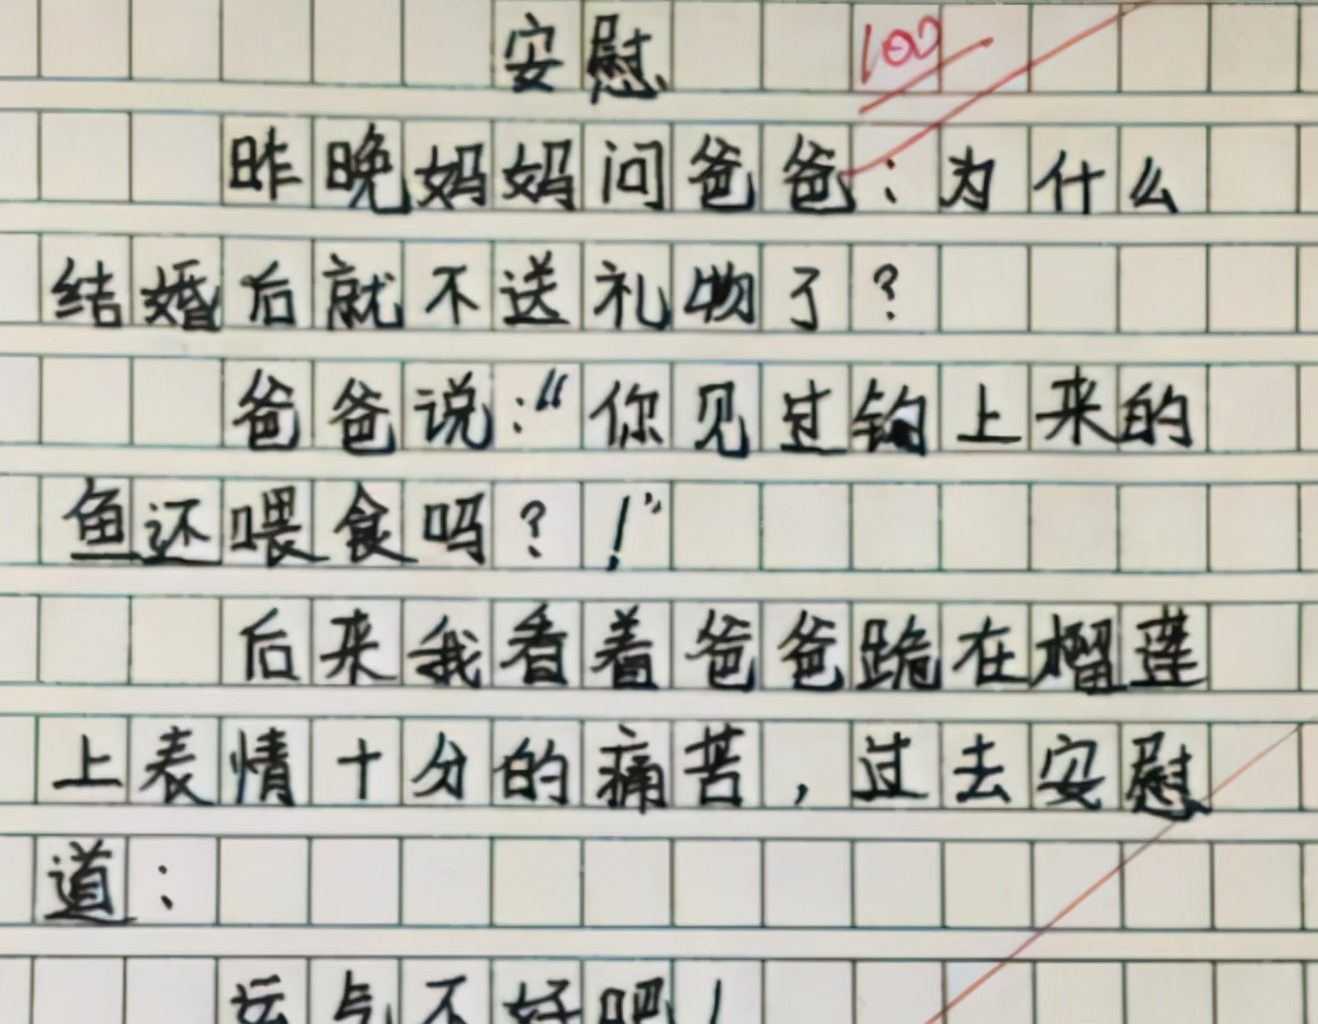 安慰
100
昨晚妈妈问爸爸:为什么
结婚后就不送礼物了?
爸爸说:“你见过钩上来的
鱼还喂食吗?!”
后来我看着爸爸跪在榴莲
上表情十分的痛苦,过去安慰
道:
运气不好吧!